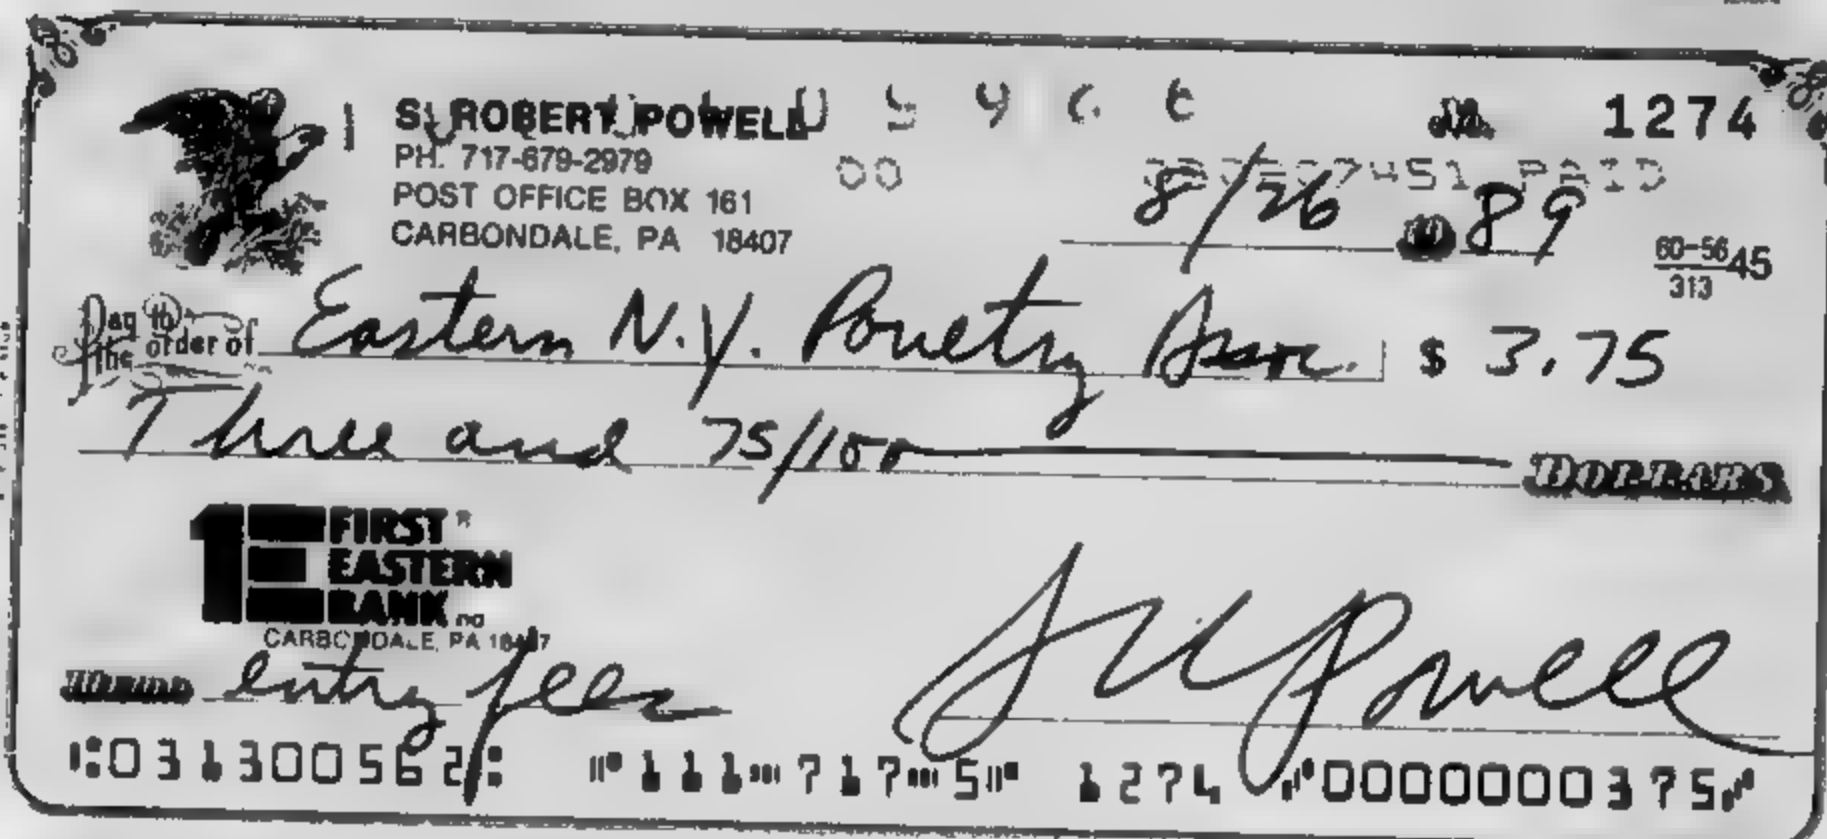 S. ROBERT POWELL
PH. 717-679-2979
POST OFFICE BOX 161
CARBONDALE, PA 18407
1274
00 PAID
8/26 19 89
60-56 45
313
Pay to the order of Eastern N.Y. Pouetry Assoc. $ 3.75
Three and 75/100 DOLLARS
FIRST
EASTERN
BANK na
CARBONDALE, PA 18407
MEMO entry fees
S R Powell
⑆031300562⑆ ⑈111⑉717⑉5⑈ 1274 ⑈0000000375⑈